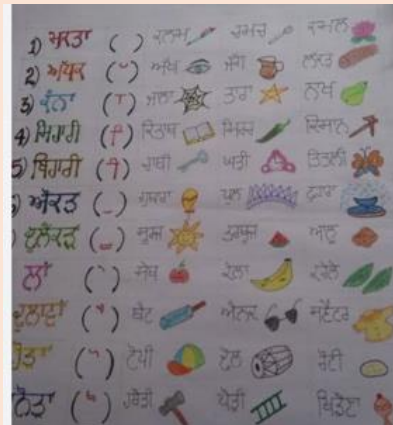 1) ( ) ਕਲਮ ਚਮਚ ਕਮਲ
2) ਅੱਧਕ ( ੱ ) ਅੱਖ ਜੱਗ ਲੱਕੜ
3) ਕੰਨਾ ( ਾ ) ਜਾਲਾ ਤਾਰਾ ਨਾਖ
4) ਸਿਹਾਰੀ ( ਿ ) ਕਿਤਾਬ ਮਿਰਚ ਕਿਸਾਨ
5) ਬਿਹਾਰੀ ( ੀ ) ਚਾਬੀ ਘੜੀ ਤਿਤਲੀ
) ਔਕੜ ( ੁ ) ਗੁਬਾਰਾ
) ਦੁਲੈਂਕੜ ( ੂ ) ਸੂਰਜ ਤਰਬੂਜ ਆਲੂ
ਲਾਂ ( ੇ ) ਸੇਬ ਕੇਲਾ ਕਰੇਲੇ
ਦੁਲਾਵਾਂ ( ੈ ) ਬੈਟ ਐਨਕ ਸਵੈਟਰ
ਹੋੜਾ ( ੋ ) ਟੋਪੀ ਢੋਲ ਰੋਟੀ
ਨੌੜਾ ( ੌ ) ਹਥੌੜੀ ਪੌੜੀ ਖਿਡੌਣਾ